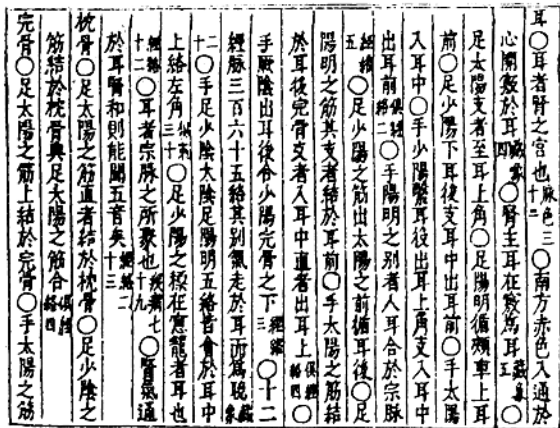 耳〇耳者腎之官也脉色三十二〇南方赤色入通於
心開竅於耳藏象四〇腎主耳在竅為耳藏象五〇
足太陽支者至耳上角〇足陽明循頰車上耳
前〇足少陽下耳後支耳中出耳前〇手太陽
入耳中〇手少陽繫耳後出耳上角支入耳中
出耳前俱經絡二〇手陽明之別者入耳合於宗脉
經絡五〇足少陽之筋出太陽之前循耳後〇足
陽明之筋其支者結於耳前〇手太陽之筋結
於耳後完骨支者入耳中直者出耳上俱經絡四〇
手厥陰出耳後合少陽完骨之下經絡三〇十二
經脉三百六十五絡其別氣走於耳而為聽藏象
十二〇手足少陰太陰足陽明五絡皆會於耳中
上絡左角鍼刺三十〇足少陽之標在窻籠者耳也
經絡十二〇耳者宗脉之所聚也疾病七十九〇腎氣通
於耳腎和則能聞五音矣經絡二十三
枕骨〇足太陽之筋直者結於枕骨〇足少陰之
筋結於枕骨與足太陽之筋合俱經絡四
完骨〇足太陽之筋上結於完骨〇手太陽之筋